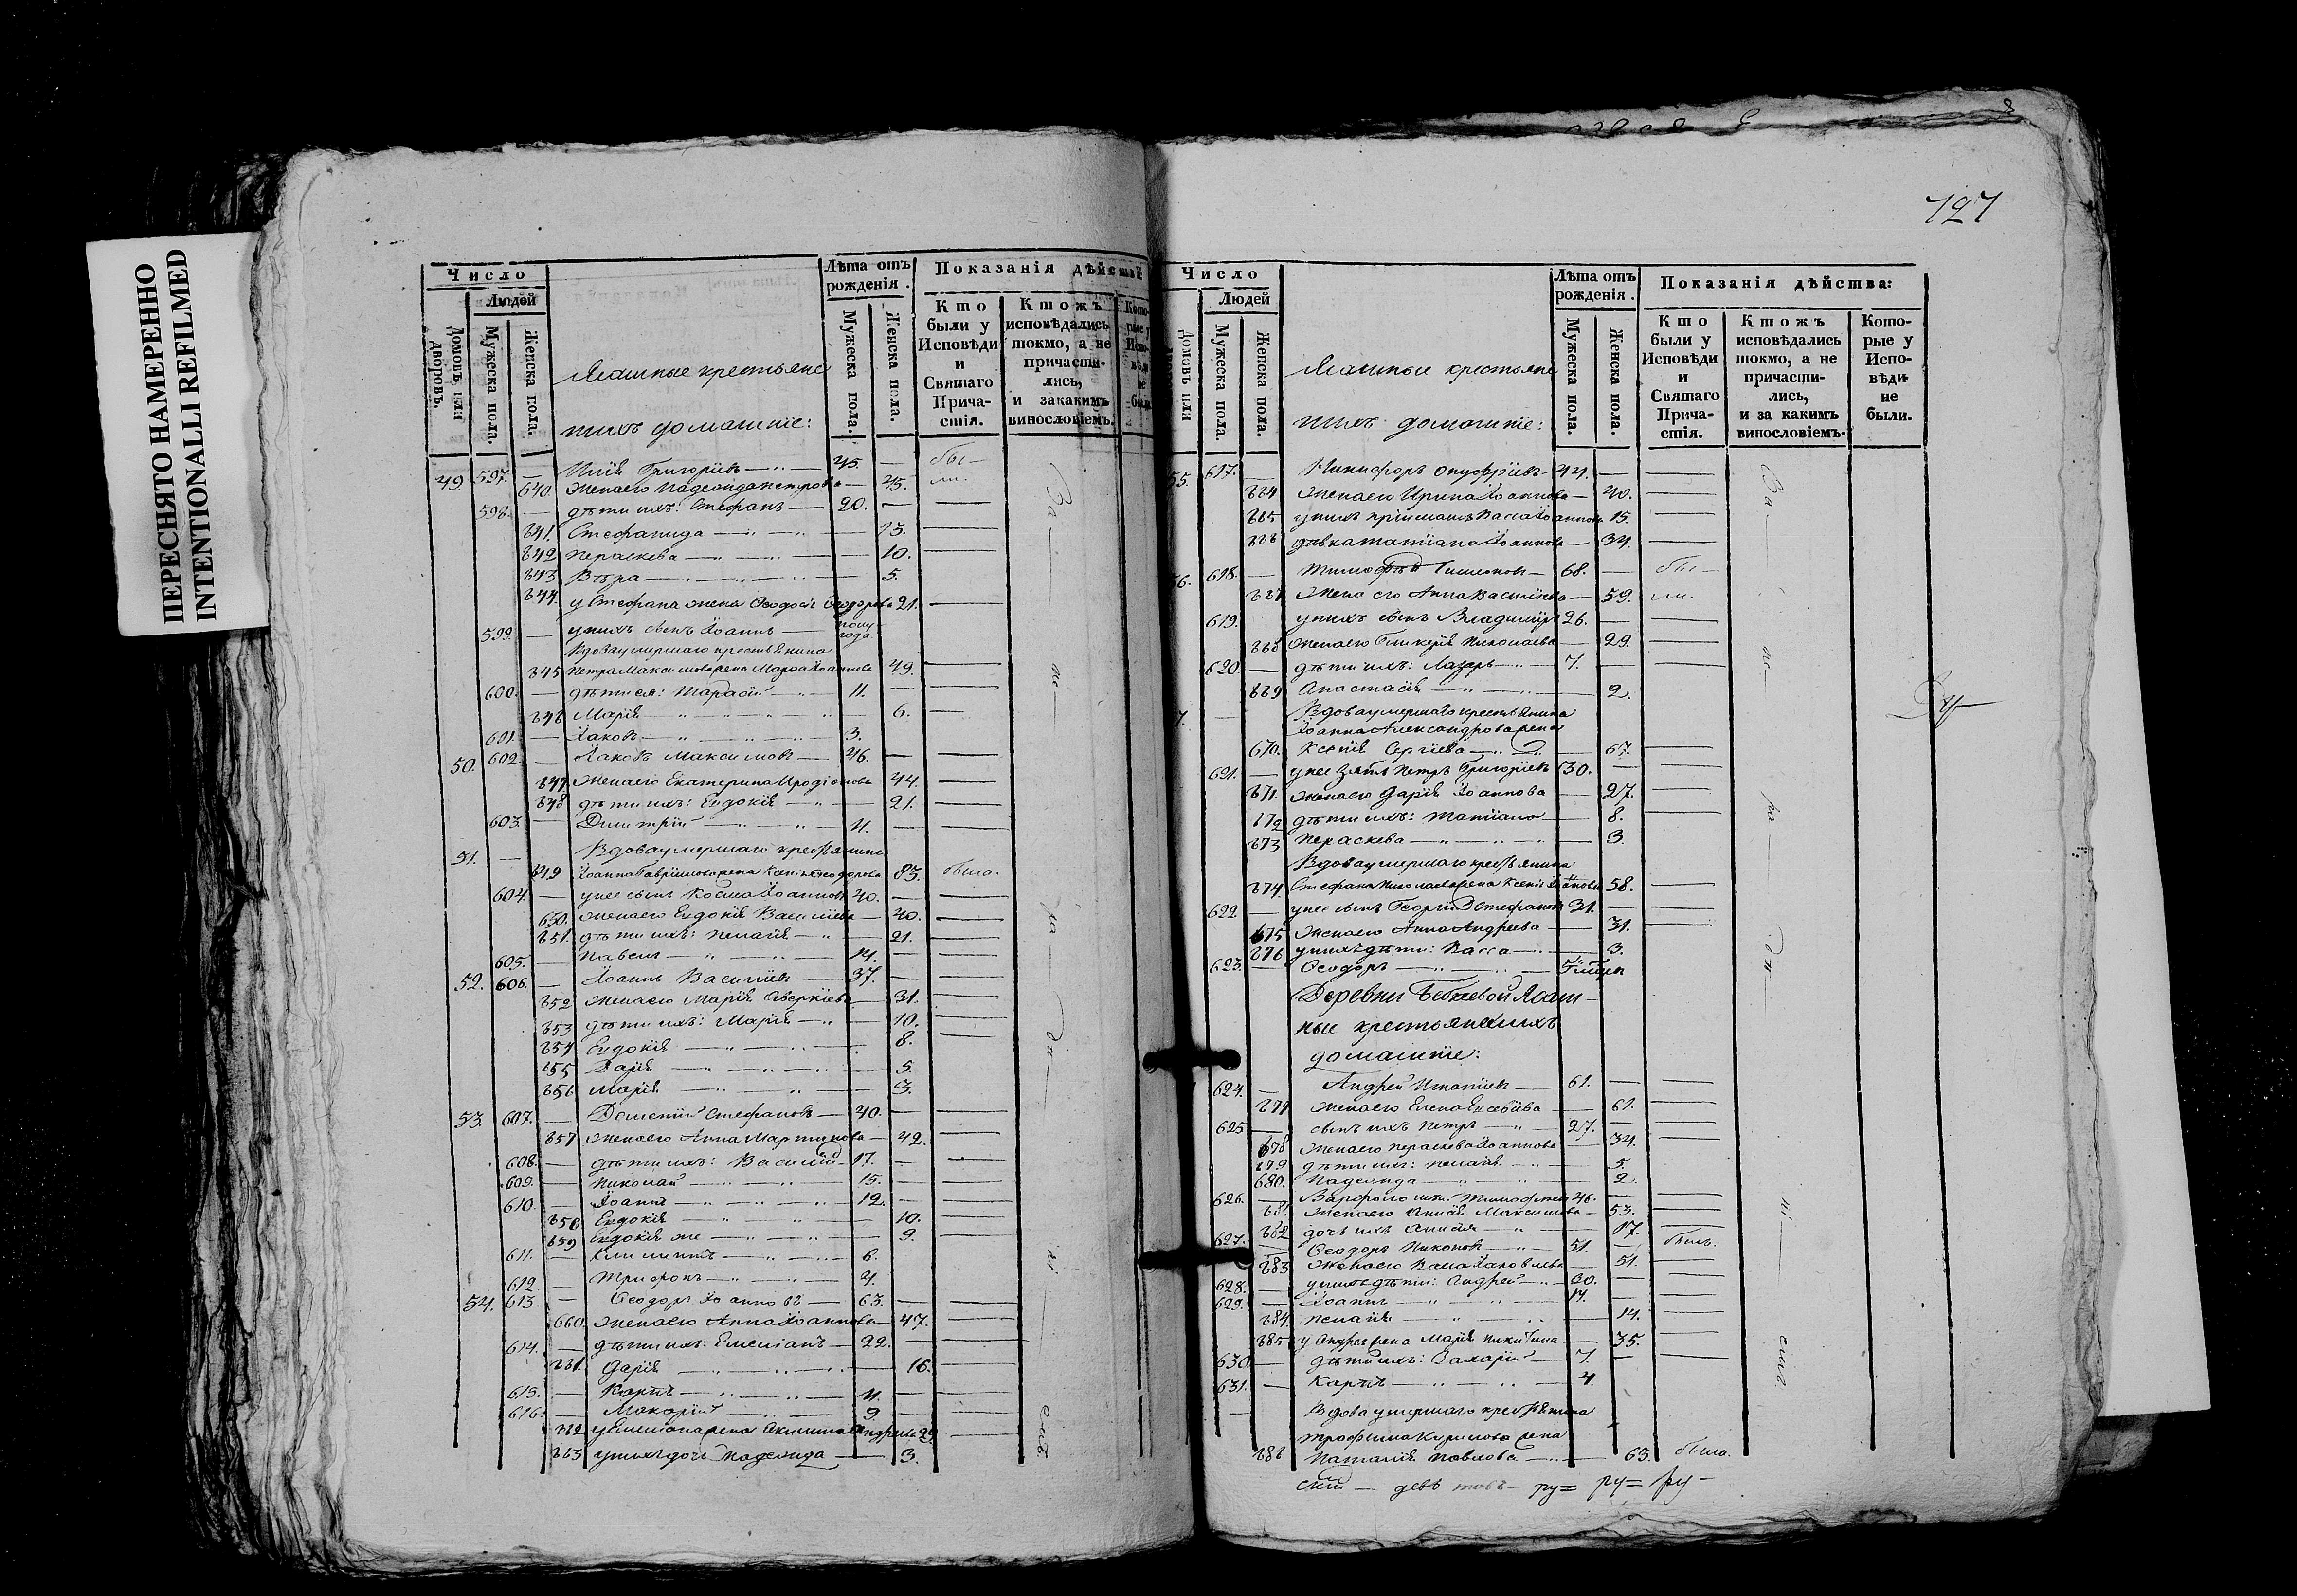 ПЕРЕСНЯТО НАМЕРЕННО
INTENTIONALLI REFILMED
127
Число
Людей
Домовъ или дворовъ.
Мужеска пола.
Женска пола.
Яшашные крестьяне
ихъ домашнїе:
Лѣта отъ рожденїя.
Мужеска пола.
Женска пола.
Показанїя дѣйства:
Кто были у Исповѣди и Святаго Причастїя.
Ктожъ исповѣдались токмо, а не причастились, и закакимъ винословїемъ.
49. 597. — Илїя Григорїевъ — 45. — бы-
640 жена его Надежда Петрова — 45. ли.
598. — дѣти ихъ: Стефанъ — 20. —
641. Стефанида — 13.
642 Параскева — 10.
643 Вѣра — 5.
644. у Стефана жена Ѳеодосїя Ѳеодорова 21.
599. — у нихъ сынъ Іоаннъ — полугода
Вдова умершаго крестьянина
645 Петра Максимова жена Марѳа Іоаннова 49.
600. — дѣти ея: Тарасїй — 11. —
646 Марїя — 6.
601. — Іаковъ — 3.
50. 602. — Іаковъ Максимовъ — 46. —
647. жена его Екатерина Иродїонова 44.
648 дѣти ихъ: Евдокїя — 21.
603. — Димитрїй — 11. —
51. — Вдова умершаго крестьянина
649 Іоанна Гаврїилова жена Ксенїя Ѳеодорова 83. была.
604. — у нее сынъ Косма Іоанновъ 40. —
650. жена его Евдокїя Василїева — 40.
651. дѣти ихъ: Пелагїя — 21.
605. — Павелъ — 14. —
52. 606. — Іоаннъ Василїевъ — 37. —
652 жена его Марїя Аверкїева — 31.
653 дѣти ихъ: Марїя — 10.
654 Евдокїя — 8.
655 Дарїя — 5.
656 Марїя — 3.
53. 607. — Дементїй Стефановъ — 40. —
657 жена его Анна Мартинова — 42.
608. — дѣти ихъ: Василїй — 17. —
609. — Николай — 15. —
610. — Іоаннъ — 12. —
658 Евдокїя — 10.
659 Евдокїя же — 9.
611. — Климентъ — 6.
612 — Трифонъ — 4.
54. 613. — Ѳеодоръ Іоанновъ — 63. —
660. жена его Анна Іоаннова — 47.
614. — дѣти ихъ: Емелїанъ — 22. —
661. Дарїя — 16.
615. — Карпъ — 11. —
616. — Макарїй — 9. —
662 у Емелїана жена Акилина Андреева
663 у нихъ дочь Надежда — 3.
Число
Людей
Мужеска пола.
Женска пола.
Яшашные крестьяне
ихъ домашнїе:
Лѣта отъ рожденїя.
Мужеска пола.
Женска пола.
Показанїя дѣйства:
Кто были у Исповѣди и Святаго Причастїя.
Ктожъ исповѣдались токмо, а не причастились, и за какимъ винословїемъ.
Которые у Исповѣди не были.
55. 617. — Никифоръ Онуфрїевъ — 44. —
664 жена его Ирина Іоаннова — 40.
665 у нихъ прїимышъ Васса Іоаннова 15.
666 дѣвка Татїана Іоаннова — 34.
618. — Тимофей — 68. — бы-
667 жена его Анна Василїева — 59. ли.
619. у нихъ сынъ Владимїръ 26. —
668 жена его Гликерїя Николаева — 29.
620. — дѣти ихъ: Лазарь — 7. —
669 Анастасїя — 2.
— Вдова умершаго крестьянина
Іоанна Александрова жена
670. Ксенїя Сергїева — 67.
621. — у нее зять Петръ Григорїевъ 30. —
671. жена его Дарїя Іоаннова — 27.
672 дѣти ихъ: Татїана — 8.
673 Параскева — 3.
Вдова умершаго крестьянина
674. Стефана Николаева жена Ксенїя Іоаннова 58.
622. — у нее сынъ Георгїй Стефановъ 31. —
675 жена его Анна Андреева — 31.
676 у нихъ дѣти: Васса — 3.
623. — Ѳеодоръ —
Деревни Яшаш-
ные крестьяне и ихъ
домашнїе:
624. — Андрей Игнатїевъ — 61. —
677 жена его Елена Евсевїева — 61.
625 — сынъ ихъ Петръ — 27. —
678 жена его Параскева Іоаннова — 34.
679 дѣти ихъ: Пелагїя — 5.
680. Надежда — 2.
626. — Варфоломей Тимофеевъ 46. —
681. жена его Аннїя Максимова — 53.
682 дочь ихъ — 17.
627. — Ѳеодоръ Никоновъ — 51. — былъ.
683 жена его Васса Іаковлева — 51.
628. — у нихъ дѣти: Андрей — 30. —
629. — Іоаннъ — 14. —
684. Пелагїя — 14.
685 у Андрея жена Марїя Никитина — 35.
630. — дѣти ихъ: Захарїй — 7. —
631. — Карпъ — 4.
— Вдова умершаго крестьянина
Трофима Кирилова жена
686 Наталїя Павлова — 63. была.